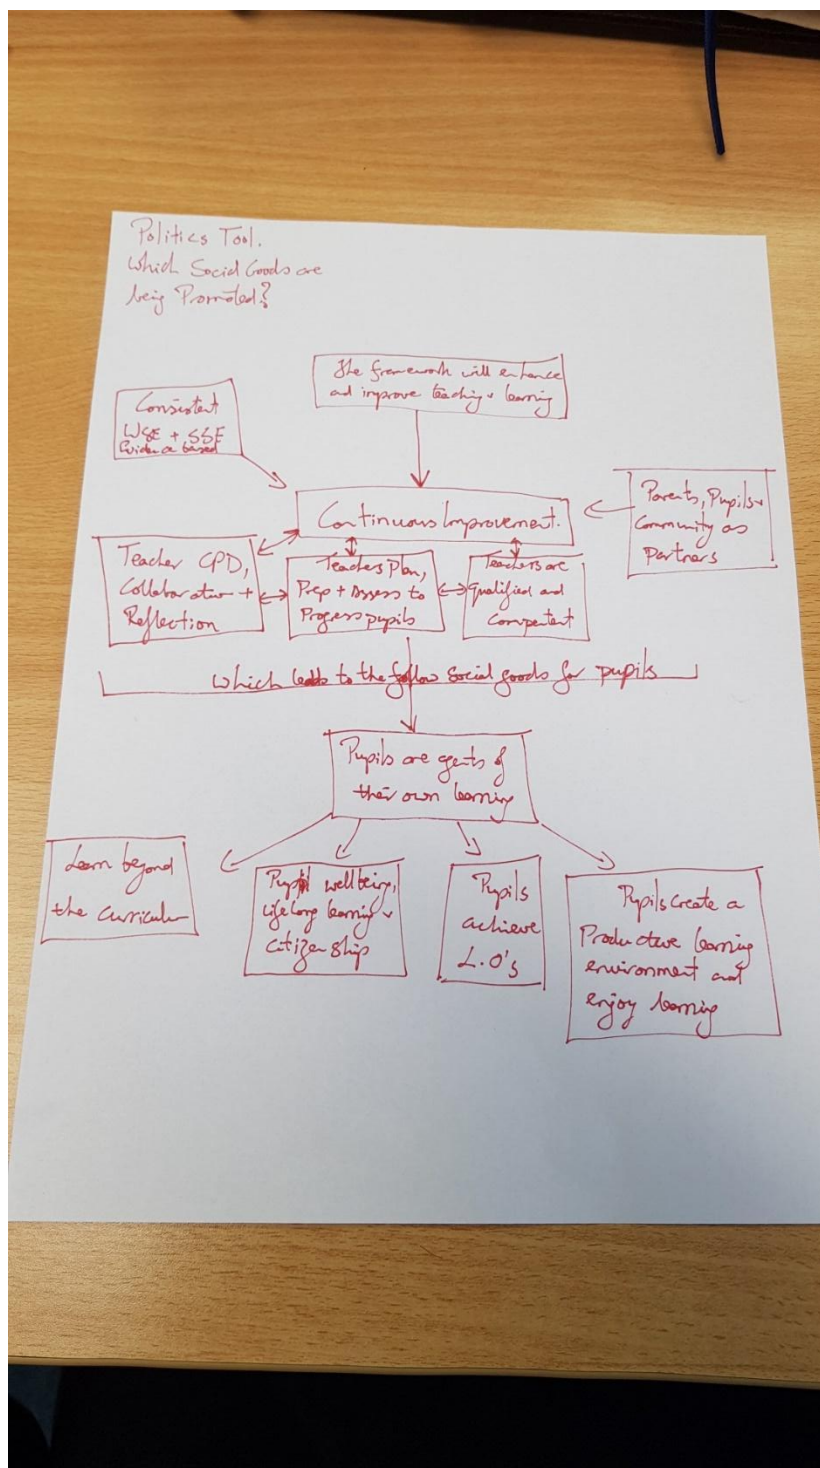 Politics Tool.
Which Social Goods are
being Promoted?
The framework will enhance
and improve teaching + learning
Consistent
WSE + SSE
Evidence based
Continuous Improvement.
Parents, Pupils +
Community as
Partners
Teacher CPD,
Collaboration +
Reflection
Teachers Plan,
Prep + Assess to
Progress pupils
Teachers are
qualified and
Competent
which leads to the follow social goods for pupils
Pupils are agents of
their own learning
Learn beyond
the curriculum
Pupil wellbeing,
lifelong learning +
citizenship
Pupils
achieve
L.O's
Pupils create a
Productive learning
environment and
enjoy learning